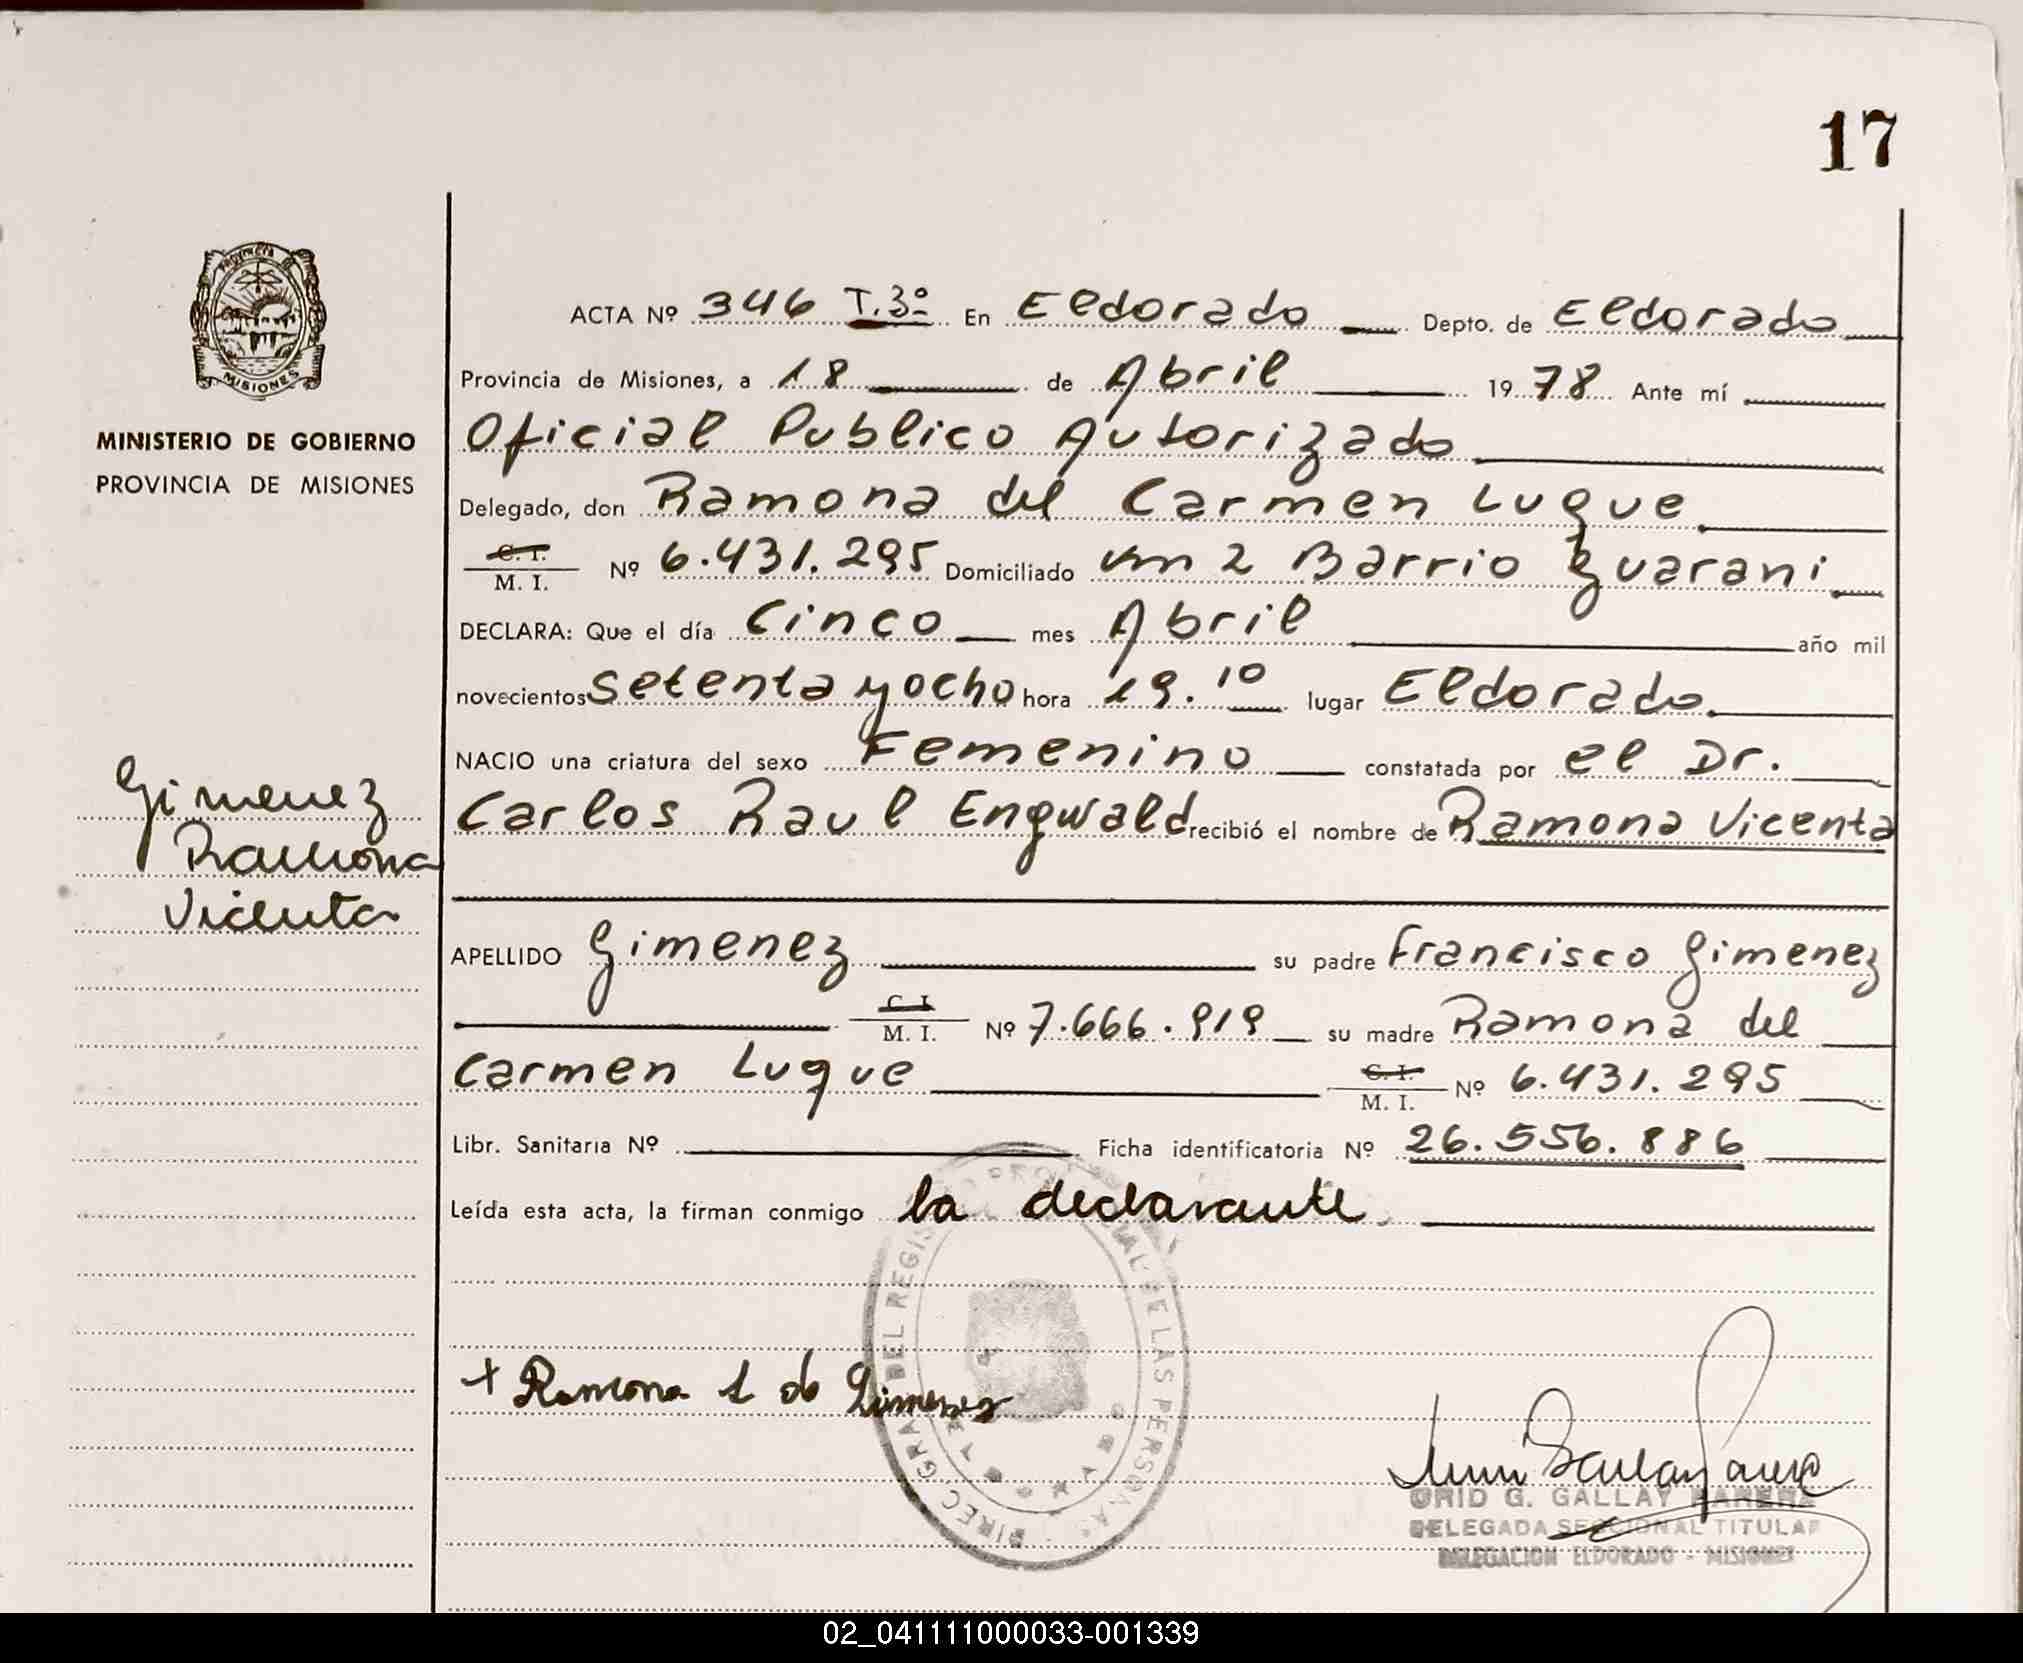 17
PROVINCIA DE
MISIONES
MINISTERIO DE GOBIERNO
PROVINCIA DE MISIONES
Gimenez
Ramona
Vicenta
ACTA Nº 346 T.3º En Eldorado Depto. de Eldorado
Provincia de Misiones, a 18 de Abril 1978 Ante mí
Oficial Publico Autorizado
Delegado, don Ramona del Carmen Luque
C. I. / M. I. Nº 6.431.295 Domiciliado Km 2 Barrio Guarani
DECLARA: Que el día Cinco mes Abril año mil
novecientos Setenta y ocho hora 19.10 lugar Eldorado
NACIO una criatura del sexo Femenino constatada por el Dr.
Carlos Raul Engwald recibió el nombre de Ramona Vicenta
APELLIDO Gimenez su padre Francisco Gimenez
C. I. / M. I. Nº 7.666.919 su madre Ramona del
Carmen Luque C. I. / M. I. Nº 6.431.295
Libr. Sanitaria Nº Ficha identificatoria Nº 26.556.886
Leída esta acta, la firman conmigo la declarante
+ Ramona L de Gimenez
DEL REGISTRO PROVINCIAL DE LAS PERSONAS
DIREC. GRAL.
GRID G. GALLAY
DELEGADA SECCIONAL TITULAR
DELEGACION ELDORADO - MISIONES
02_041111000033-001339